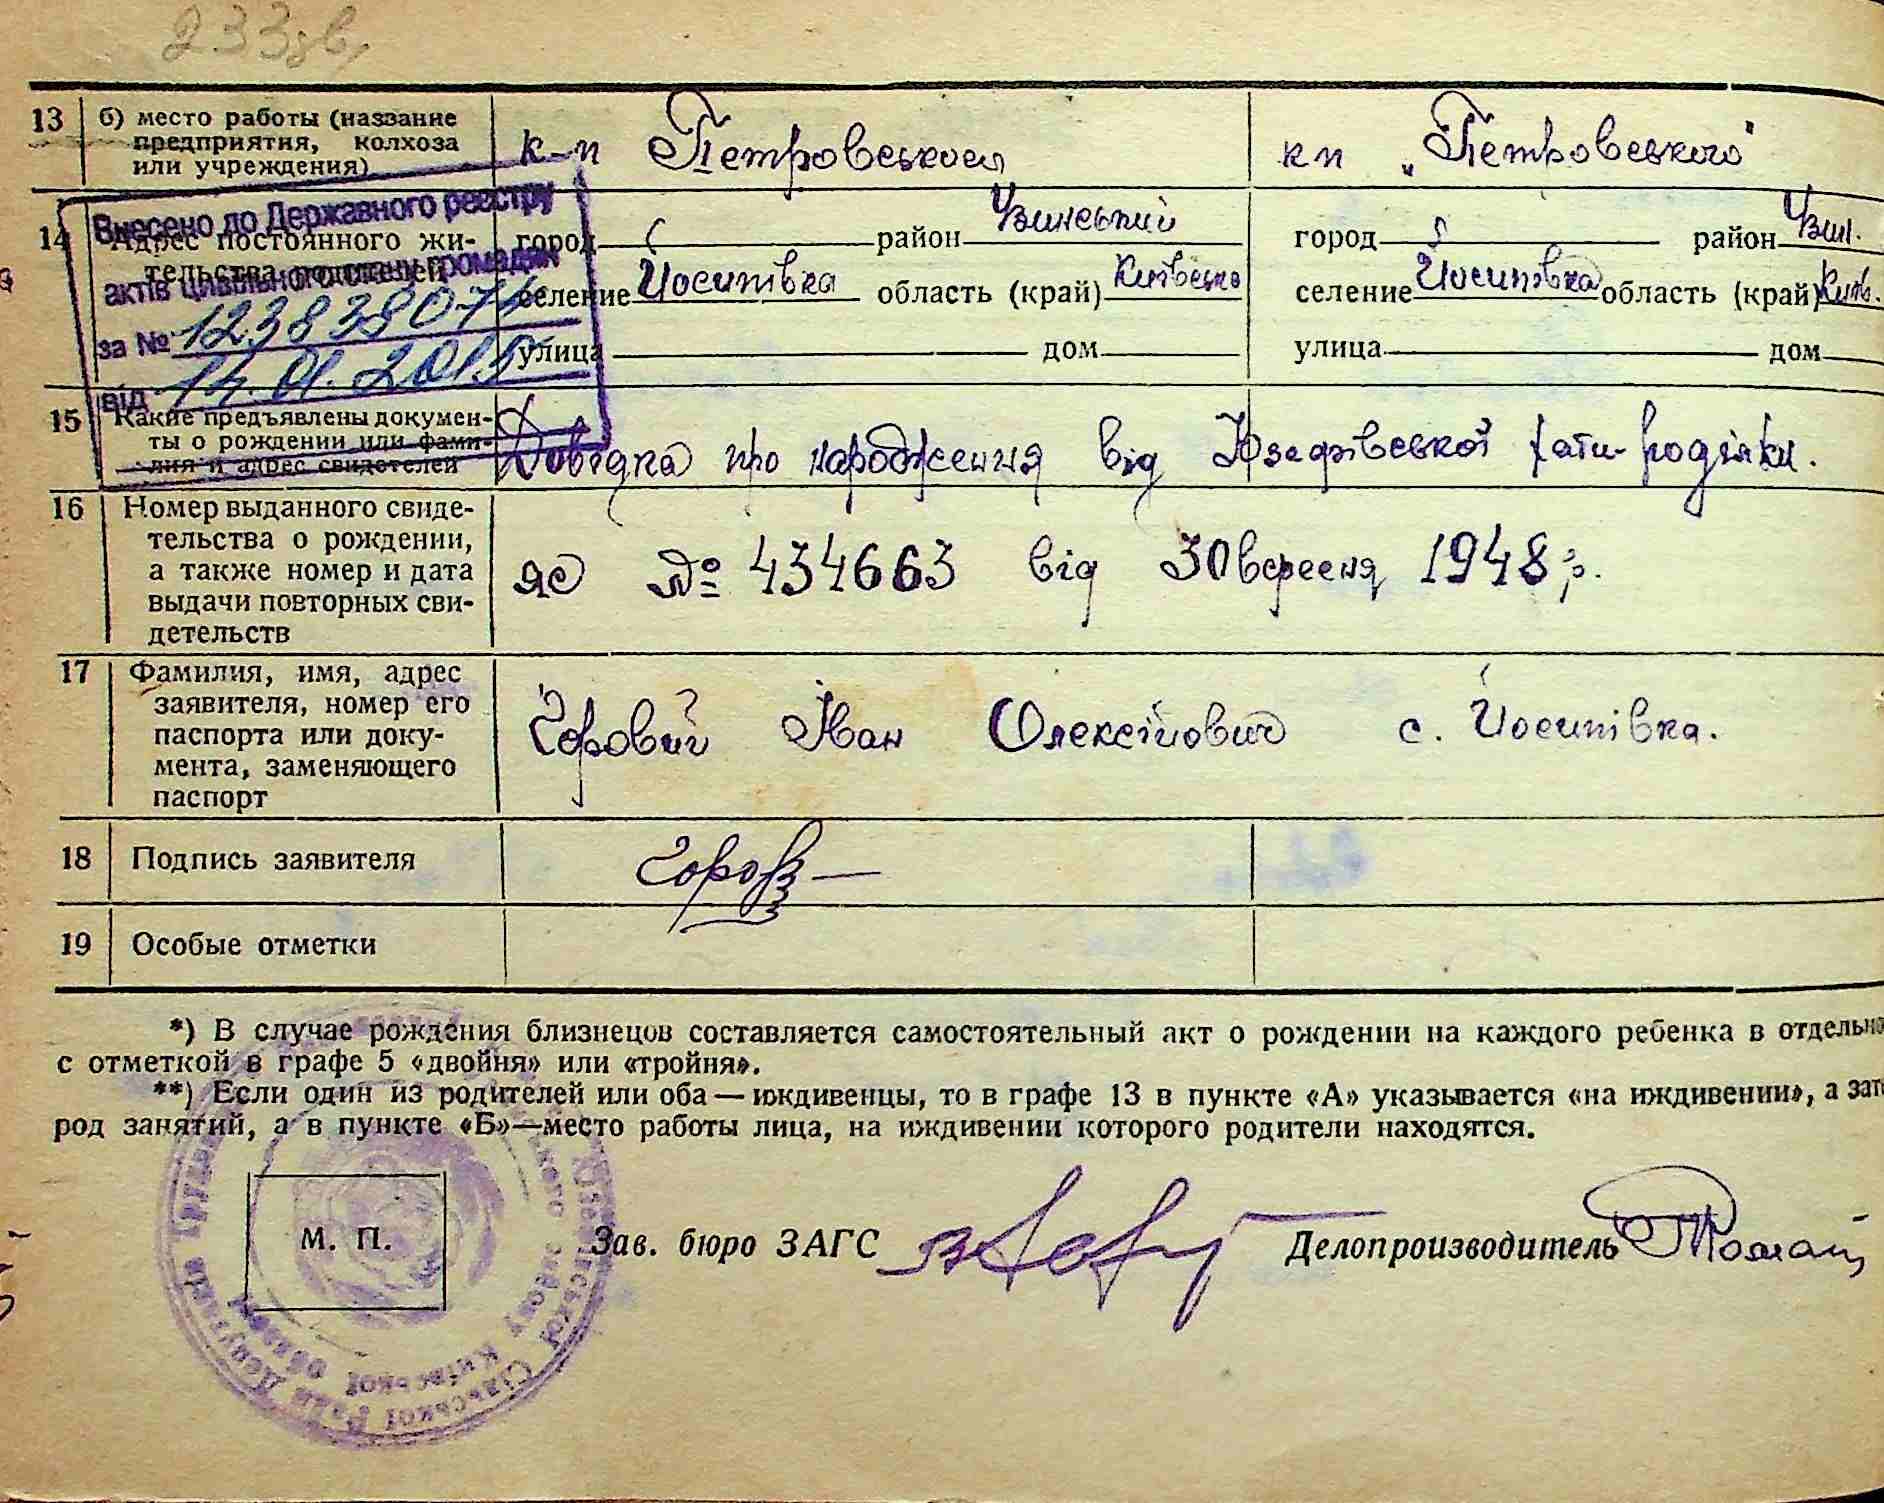 13 б) место работы (название
предприятия, колхоза
или учреждения)
к-п Петровського
кп „Петровського"
Внесено до Державного реєстру
актів цивільного стану громадян
за № 12383807
від 14.01.2015
14 Адрес постоянного жи-
тельства родителей
город район Узинський
селение Йосипівка область (край) Київська
улица дом
город район Узин.
селение Йосипівка область (край) Київ.
улица дом
15 Какие предъявлены докумен-
ты о рождении или фами-
лия и адрес свидетелей
Довідка про народження від хати-родилки.
16 Номер выданного свиде-
тельства о рождении,
а также номер и дата
выдачи повторных сви-
детельств
ЯЮ № 434663 від 30 вересня 1948 р.
17 Фамилия, имя, адрес
заявителя, номер его
паспорта или доку-
мента, заменяющего
паспорт
Іван Олексійович с. Йосипівка.
18 Подпись заявителя
19 Особые отметки
*) В случае рождения близнецов составляется самостоятельный акт о рождении на каждого ребенка в отдельно
с отметкой в графе 5 «двойня» или «тройня».
**) Если один из родителей или оба — иждивенцы, то в графе 13 в пункте «А» указывается «на иждивении», а зате
род занятий, а в пункте «Б»—место работы лица, на иждивении которого родители находятся.
М. П.
Зав. бюро ЗАГС
Делопроизводитель
Сільської Ради Депутатів
Київської області